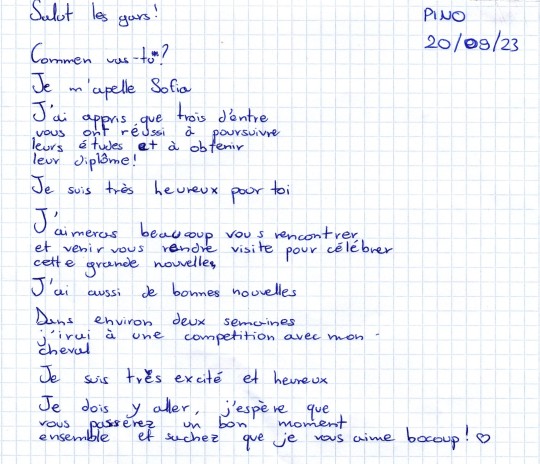 Salut les gars!
PINO
20/09/23
Commen vas-tu?
Je m'apelle Sofia
J'ai appris que trois d'entre
vous ont réussi à poursuivre
leurs études et à obtenir
leur diplôme!
Je suis très heureux pour toi
J'aimeras beaucoup vous rencontrer
et venir vous rendre visite pour célébrer
cette grande nouvelles,
J'ai aussi de bonnes nouvelles
Dans environ deux semaines
j'irai à une competition avec mon
cheval
Je suis très excité et heureux
Je dois y aller, j'espère que
vous passerez un bon moment
ensemble et sachez que je vous aime bocoup! ♡